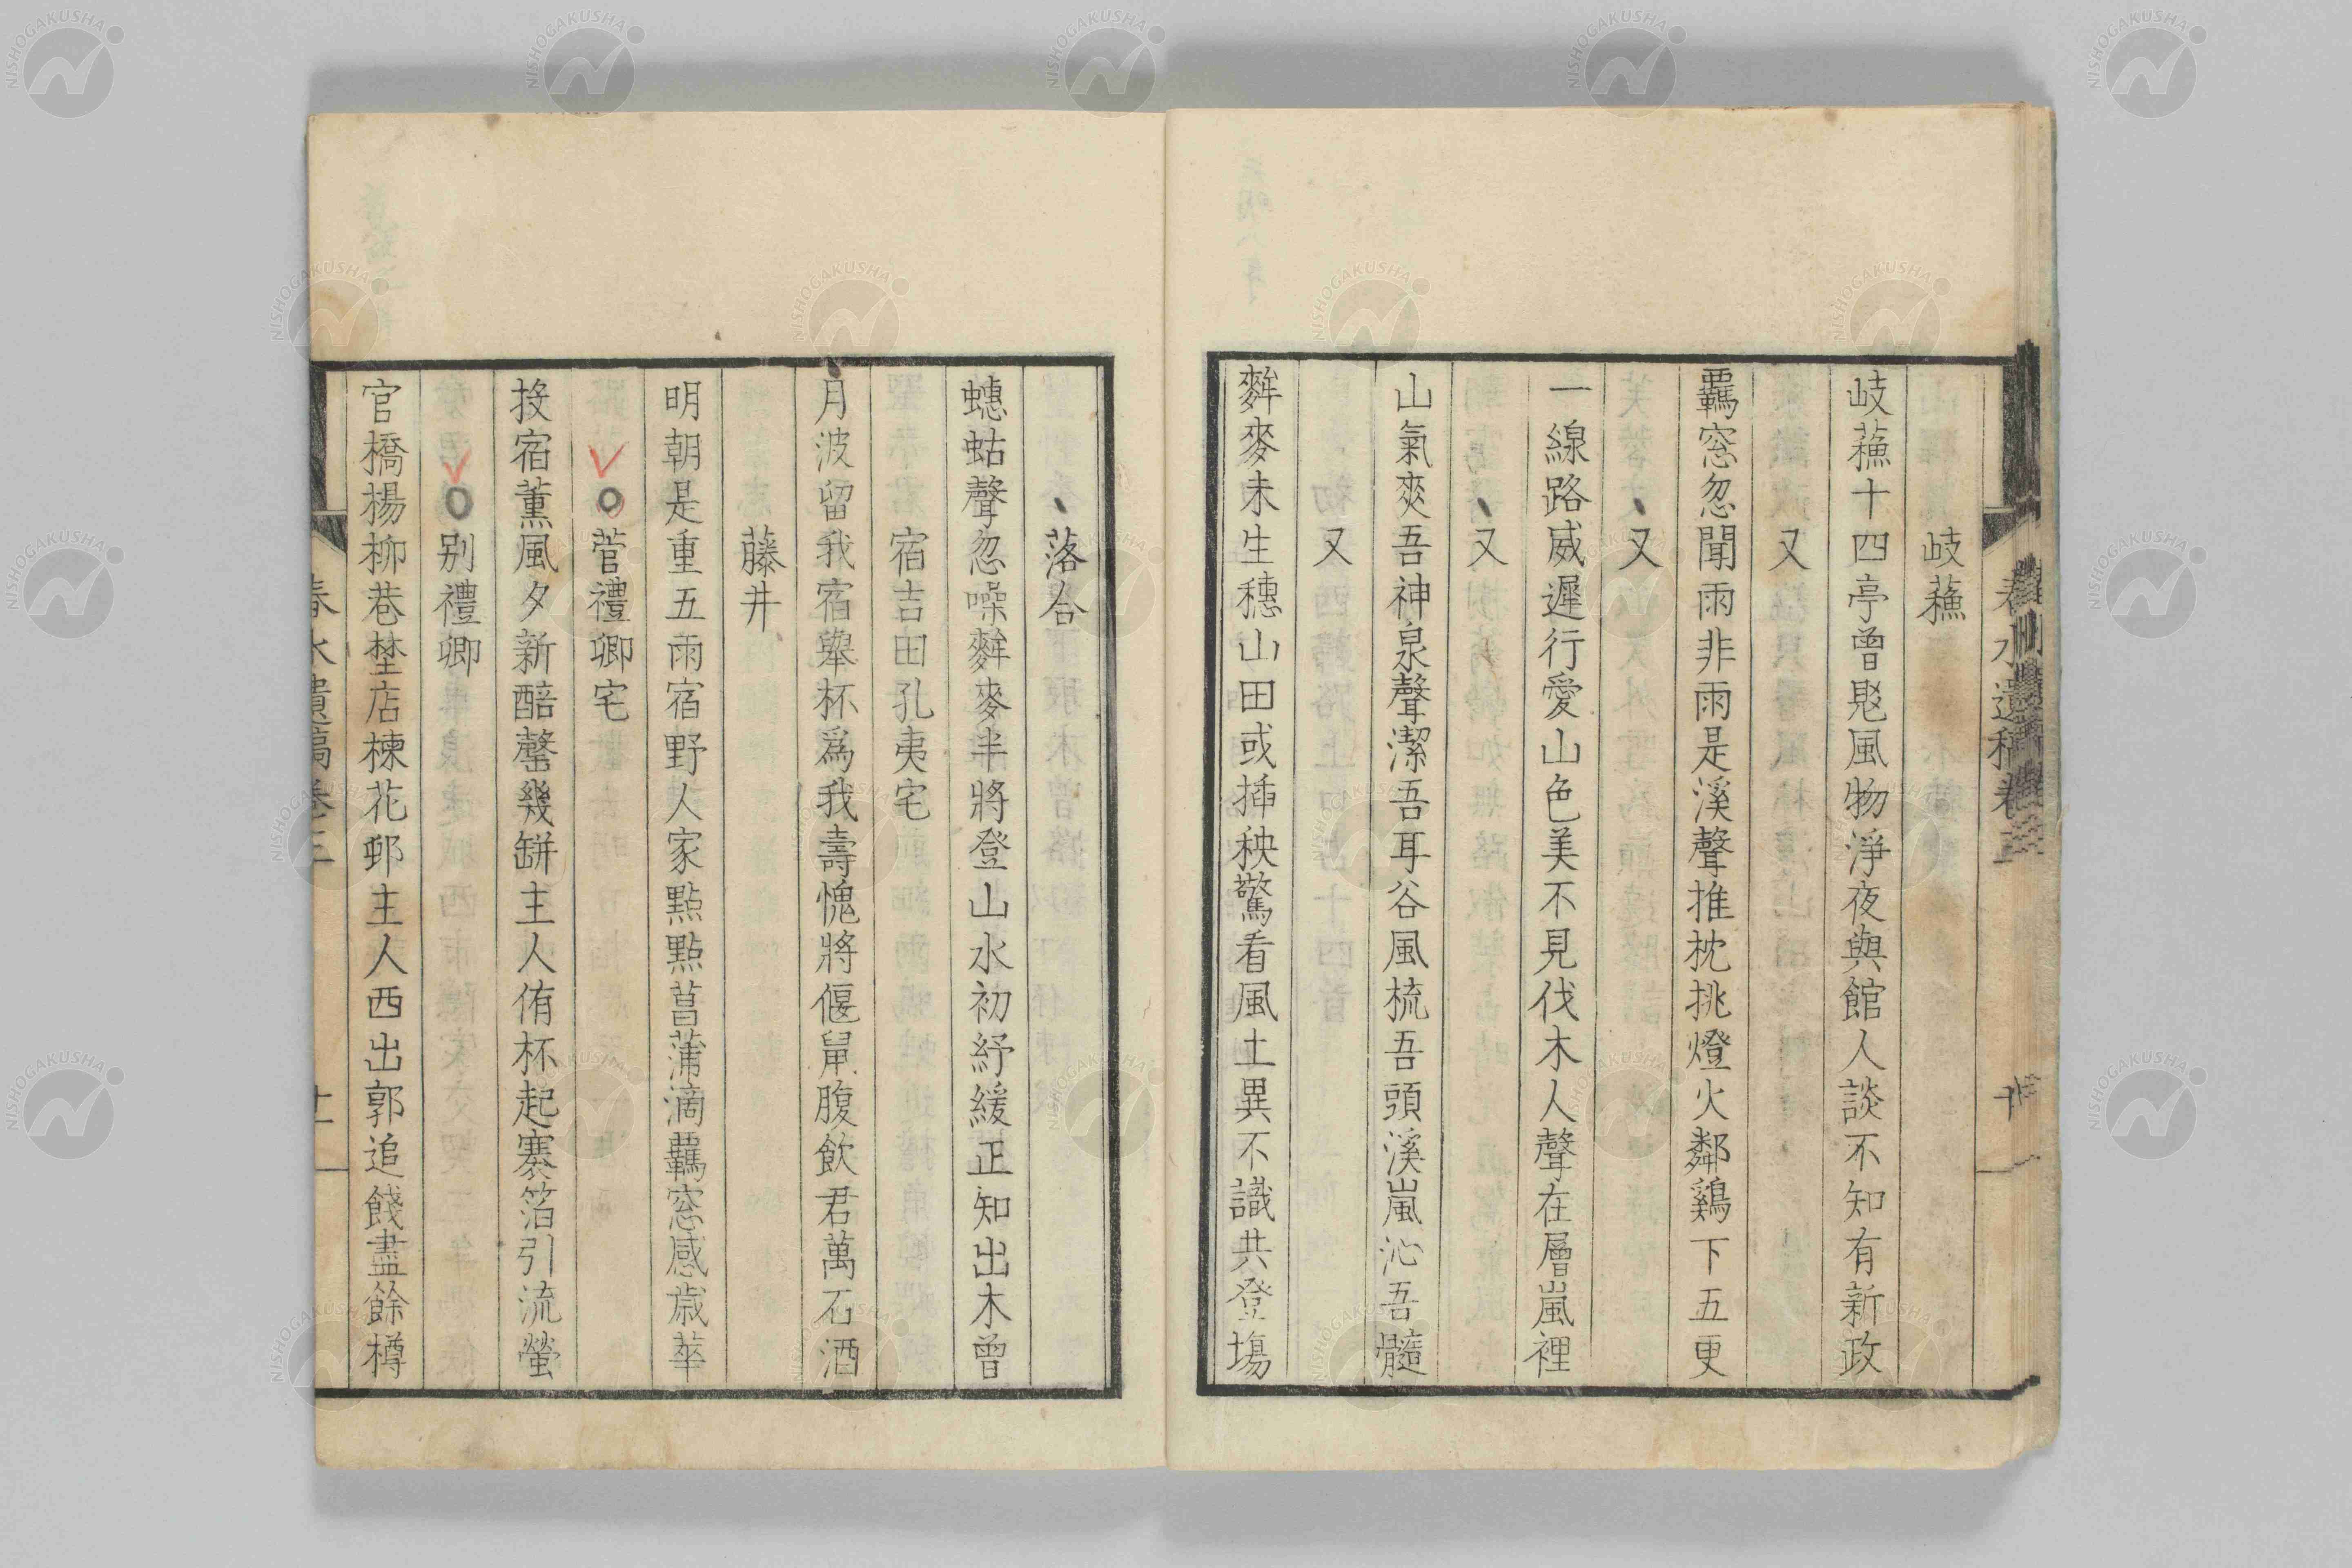 春水遺稿卷三
十
岐蘓
岐蘓十四亭曾慁風物淨夜與館人談不知有新政
又
羈窓忽聞雨非雨是溪聲推枕挑燈火鄰鷄下五更
又
一線路威遲行愛山色美不見伐木人聲在層嵐裡
又
山氣爽吾神泉聲潔吾耳谷風梳吾頭溪嵐沁吾髓
又
麰麥未生穗山田或揷秧驚看風土異不識共登塲
落合
蟪蛄聲忽噪麰麥半將登山水初紓緩正知出木曾
宿吉田孔夷宅
月波留我宿舉杯爲我壽愧將偃鼠腹飮君萬石酒
藤井
明朝是重五雨宿野人家點點菖蒲滴羈窓感歲華
菅禮卿宅
投宿薰風夕新醅罄幾缾主人侑杯起褰箔引流螢
别禮卿
官橋楊柳巷埜店楝花邨主人西出郭追餞盡餘樽
春水遺稿卷三
十一
NISHOGAKUSHA